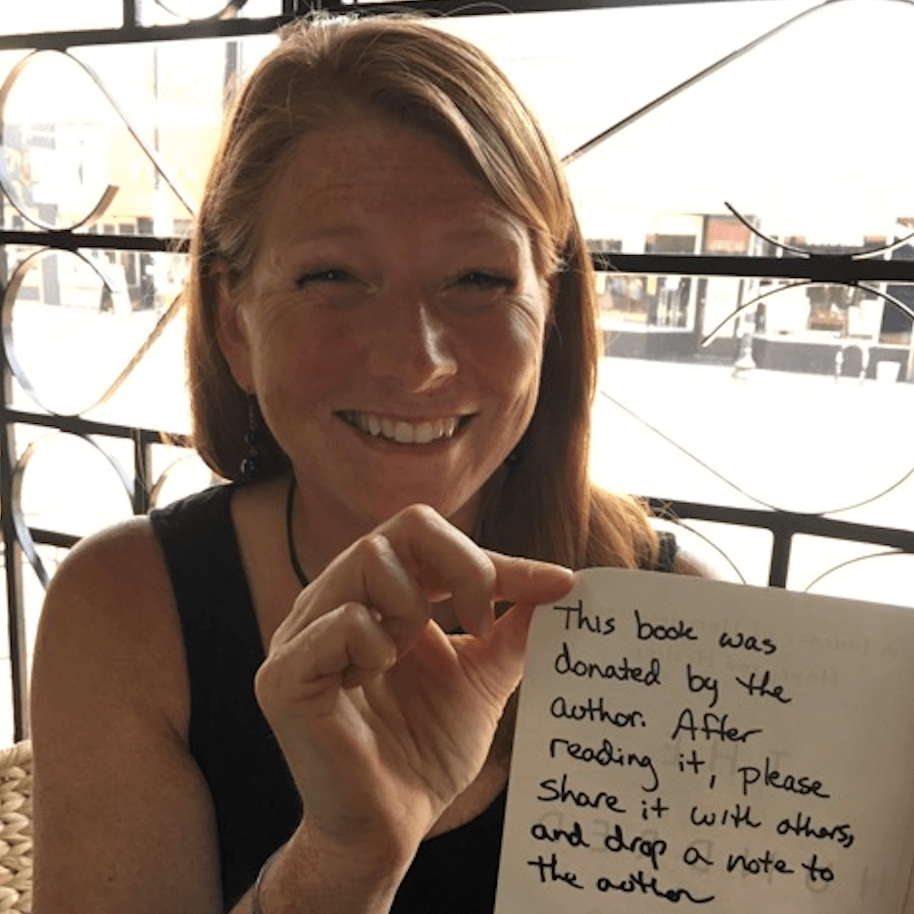 This book was
donated by the
author. After
reading it, please
share it with others,
and drop a note to
the author